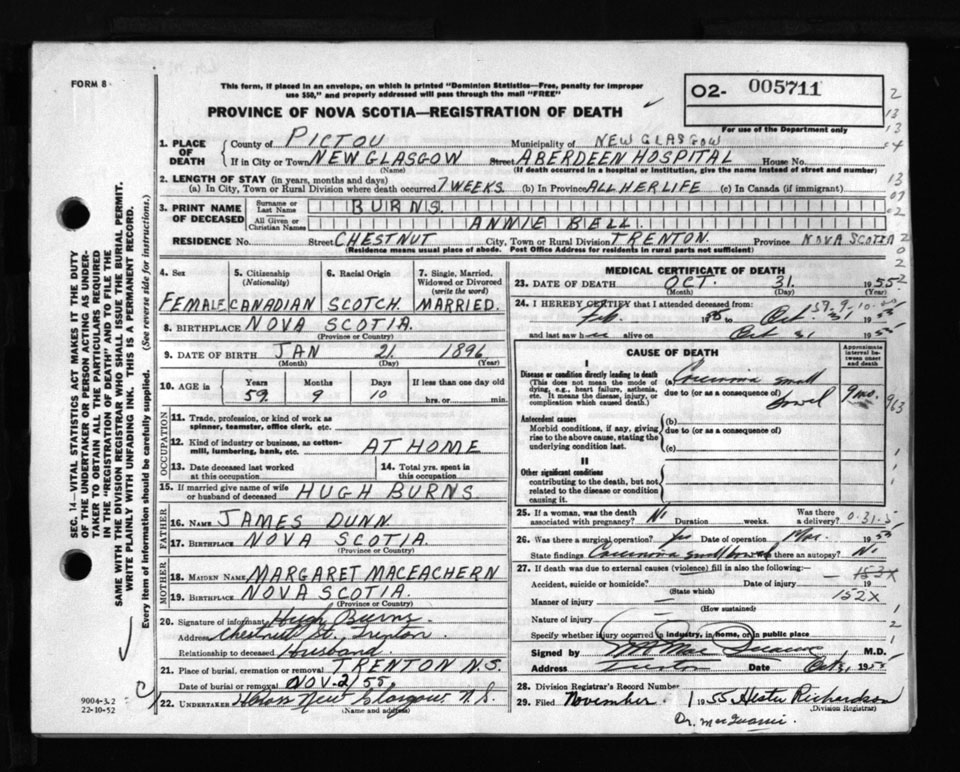 FORM 8
This form, if placed in an envelope, on which is printed "Dominion Statistics—Free, penalty for improper
use $50," and properly addressed will pass through the mail "FREE"
PROVINCE OF NOVA SCOTIA—REGISTRATION OF DEATH
O2- 005711
For use of the Department only
1. PLACE OF DEATH County of PICTOU Municipality of NEW GLASGOW
If in City or Town NEW GLASGOW Street ABERDEEN HOSPITAL House No.
(Name) (If death occurred in a hospital or institution, give the name instead of street and number)
2. LENGTH OF STAY (in years, months and days)
(a) In City, Town or Rural Division where death occurred 7 WEEKS (b) In Province ALL HER LIFE (c) In Canada (if immigrant)
3. PRINT NAME OF DECEASED Surname or Last Name BURNS.
All Given or Christian Names ANNIE BELL.
RESIDENCE No. Street CHESTNUT City, Town or Rural Division TRENTON. Province NOVA SCOTIA
(Residence means usual place of abode. Post Office Address for residents in rural parts not sufficient)
4. Sex 5. Citizenship (Nationality) 6. Racial Origin 7. Single, Married, Widowed or Divorced (write the word)
FEMALE CANADIAN SCOTCH. MARRIED.
8. BIRTHPLACE NOVA SCOTIA.
(Province or Country)
9. DATE OF BIRTH JAN 21. 1896
(Month) (Day) (Year)
10. AGE in Years Months Days If less than one day old
59. 9 10 hrs. or min.
OCCUPATION
11. Trade, profession, or kind of work as
spinner, teamster, office clark, etc.
12. Kind of industry or business, as cotton-
mill, lumbering, bank, etc. AT HOME
13. Date deceased last worked
at this occupation
14. Total yrs. spent in
this occupation
15. If married give name of wife
or husband of deceased HUGH BURNS
FATHER
16. NAME JAMES DUNN.
17. BIRTHPLACE NOVA SCOTIA.
(Province or Country)
MOTHER
18. MAIDEN NAME MARGARET MACEACHERN
19. BIRTHPLACE NOVA SCOTIA.
(Province or Country)
20. Signature of informant Hugh Burns
Address Chestnut St., Trenton.
Relationship to deceased Husband.
21. Place of burial, cremation or removal TRENTON N.S.
Date of burial or removal NOV. 2/55.
22. UNDERTAKER New Glasgow. N.S.
(Name and address)
MEDICAL CERTIFICATE OF DEATH
23. DATE OF DEATH OCT. 31. 1955
(Month) (Day) (Year)
24. I HEREBY CERTIFY that I attended deceased from
Feb. 1955 to Oct. 31 1955
and last saw her alive on Oct 31 1955
CAUSE OF DEATH
Approximate interval between onset and death
I
Disease or condition directly leading to death
(This does not mean the mode of
dying, e.g., heart failure, asthenia,
etc. It means the disease, injury, or
complication which caused death.)
(a) Carcinoma small
due to (or as a consequence of) bowel 9 mo.
Antecedent causes
Morbid conditions, if any, giving
rise to the above cause, stating the
underlying condition last.
(b)
due to (or as a consequence of)
(c)
II
Other significant conditions
contributing to the death, but not
related to the disease or condition
causing it.
25. If a woman, was the death
associated with pregnancy? No Duration weeks. Was there
a delivery?
26. Was there a surgical operation? Yes Date of operation Mar. 1955
State findings Carcinoma small bowel Was there an autopsy? No
27. If death was due to external causes (violence) fill in also the following:—
Accident, suicide or homicide? Date of injury 19
(State which)
153X
152X
Manner of injury
(How sustained)
Nature of injury
Specify whether injury occurred in industry, in home, or in public place
Signed by M.D.
Address Trenton Date Oct 31 1955
28. Division Registrar's Record Number
29. Filed November. 1 1955 Hester Richardson
(Division Registrar)
SEC. 14—VITAL STATISTICS ACT MAKES IT THE DUTY
OF THE UNDERTAKER OR PERSON ACTING AS UNDER-
TAKER TO OBTAIN ALL THE PARTICULARS REQUIRED
IN THE "REGISTRATION OF DEATH" AND TO FILE THE
SAME WITH THE DIVISION REGISTRAR WHO SHALL ISSUE THE BURIAL PERMIT.
WRITE PLAINLY WITH UNFADING INK. THIS IS A PERMANENT RECORD.
Every item of information should be carefully supplied. (See reverse side for instructions.)
9004-3.2
22-10-52